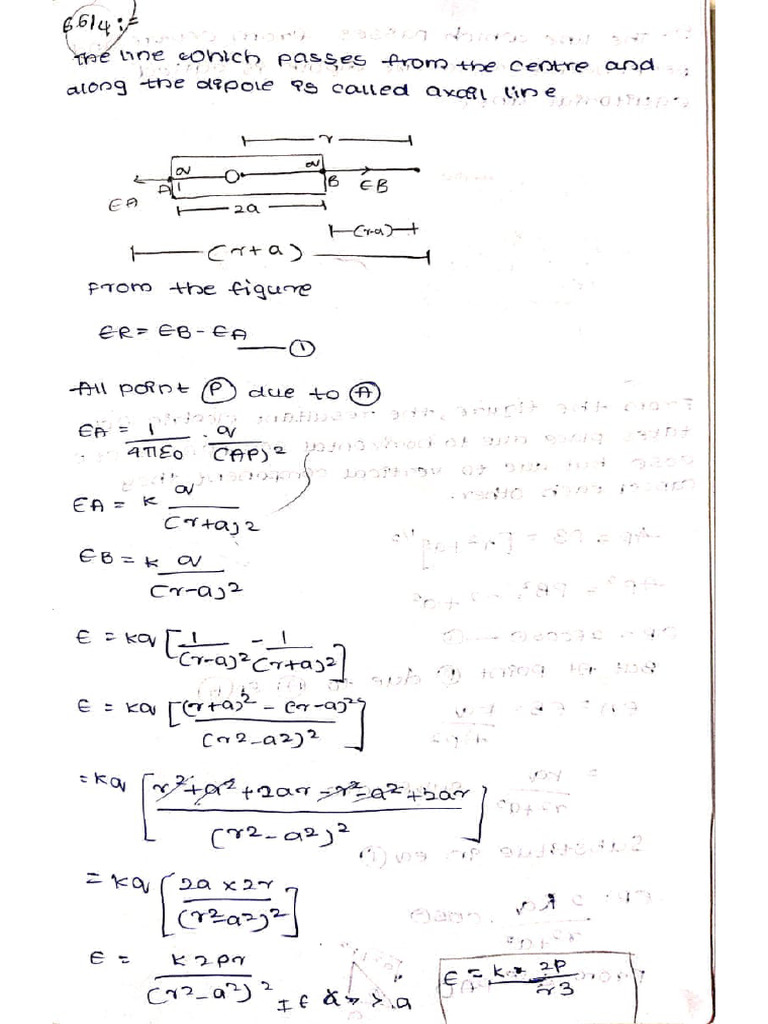 6.6/4 :=
The line which passes from the centre and
along the dipole is called axail line
r
q q
A B EB
EA
2a
(r-a)
(r+a)
From the figure
ER = EB - EA —— ①
All point Ⓟ due to Ⓐ
EA = 1/4πε0 . q/(AP)2
EA = K q/(r+a)2
EB = K q/(r-a)2
E = Kq [1/(r-a)2 - 1/(r+a)2]
E = Kq [(r+a)2 - (r-a)2/(r2-a2)2]
= Kq [r2+a2+2ar-r2-a2+2ar/(r2-a2)2]
= Kq [2a x 2r/(r2-a2)2]
E = K2Pr/(r2-a2)2 If r >> a E = K 2P/r3